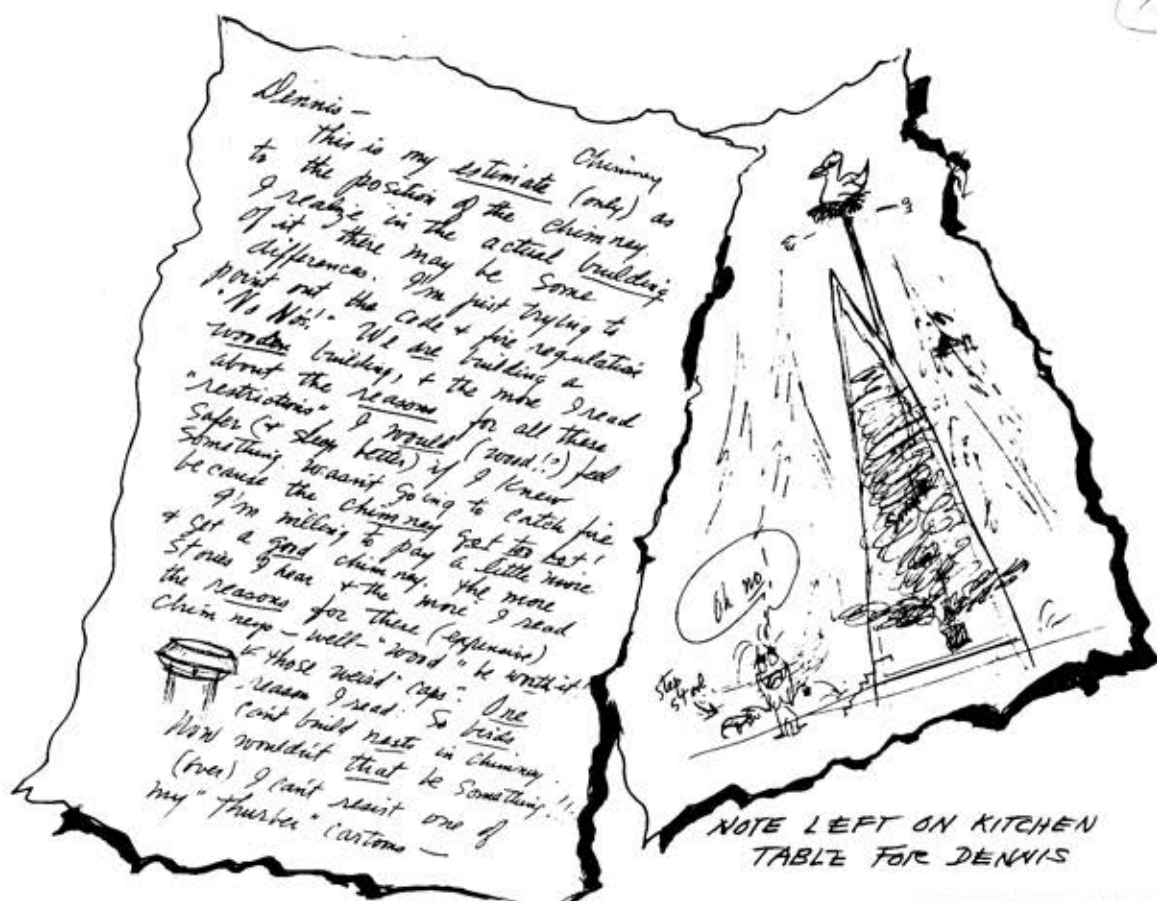 Dennis —
Chimney
This is my estimate (only) as
to the position of the chimney.
I realize in the actual building
of it there may be some
differences. I'm just trying to
point out the code & fire regulation
"No No's!" We are building a
wooden building, & the more I read
about the reasons for all these
"restrictions" I would (wood!!) feel
safer (& sleep better) if I knew
something wasn't going to catch fire
because the chimney got too hot!
I'm willing to pay a little more
& get a good chimney. The more
stories I hear & the more I read
the reasons for these (expensive)
chimneys — well — "wood" be worth it!
those weird "caps". One
reason I read: So birds
can't build nests in chimney.
Now wouldn't that be something!!
(over) I can't resist one of
my "Thurber" cartoons —
Oh no!
Step
stool
NOTE LEFT ON KITCHEN
TABLE FOR DENNIS